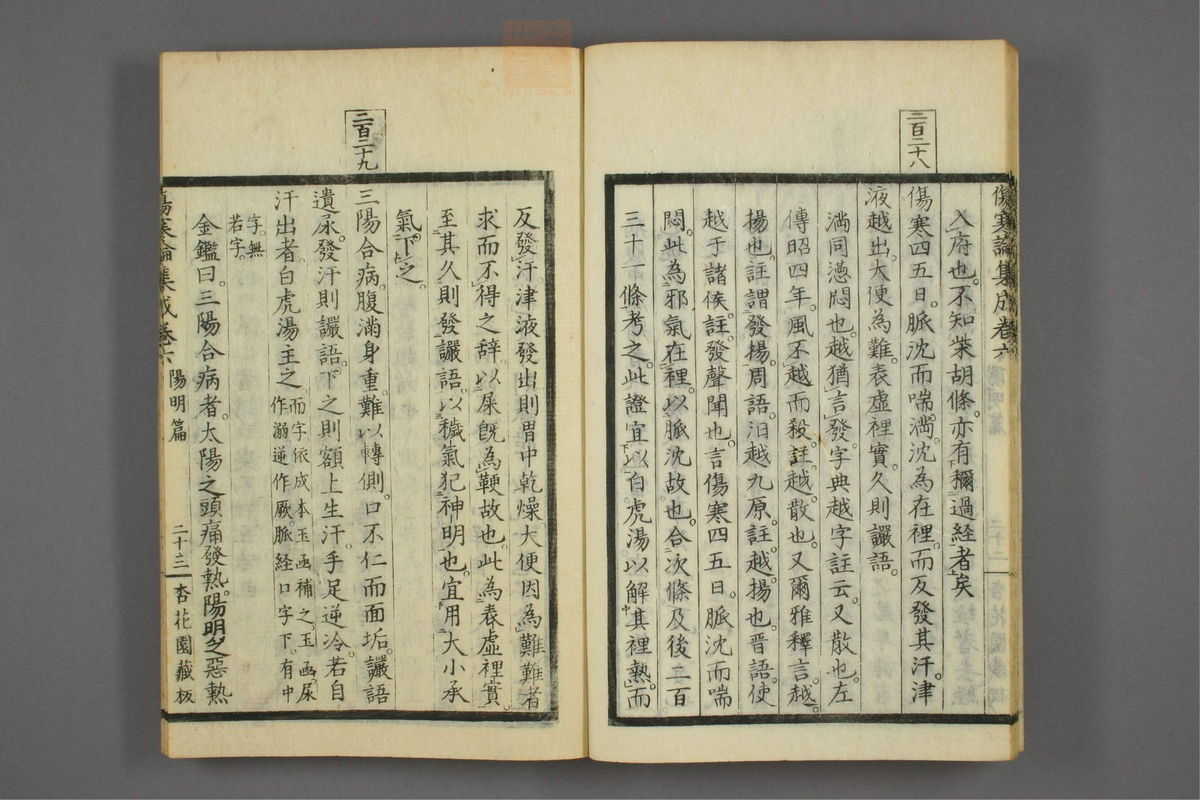 三百二十八
傷寒論集成卷六
入府也。不知柴胡條。亦有稱過経者矣
傷寒四五日。脈沈而喘滿。沈為在裡。而反發其汗。津
液越出。大便為難。表虛裡實。久則讝語。
滿同懣悶也。越猶言發。字典越字註云。又散也。左
傳昭四年。風不越而殺。註越散也。又爾雅釋言。越。
揚也。註謂發揚。周語。汨越九原。註。越。揚也。晋語。使
越于諸侯。註。發聲聞也。言傷寒四五日。脈沈而喘
悶。此為邪氣在裡。以脈沈故也。合次條及後二百
三十一條考之。此證宜以白虎湯以解其裡熱。而
反發汗。津液發出則胃中乾燥大便因為難。難者
求而不得之辞。以屎旣為鞕故也。此為表虛裡實。
至其久則發讝語。以穢氣犯神明也。宜用大小承
氣下之。
三百二十九
三陽合病。腹滿身重。難以轉側。口不仁而面垢。讝語
遺尿。發汗則讝語。下之則額上生汗。手足逆冷。若自
汗出者。白虎湯主之 而字依成本玉函補之。玉函。尿
作溺。逆作厥。脈経口字下。有中
字。無
若字。
金鑑曰。三陽合病者。太陽之頭痛發熱。陽明之惡熱
傷寒論集成卷六 陽明篇 二十三 杏花園藏板